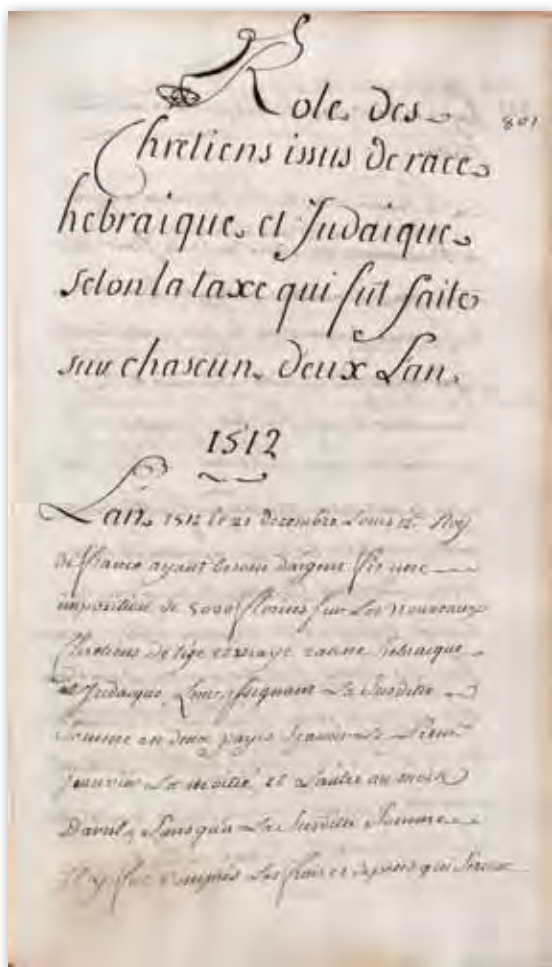 Role des
801
Chretiens issus de race
hebraique et Judaique
selon la taxe qui fut faite
sur chascun deux Lan
1512
Lan 1512 le 21 decembre Louis 12 Roy
de france ayant besoin dargent fit une
imposition de 5000 florins sur Les nouveaux
Chretiens de tige et race hebraique
et Judaique Leur La Susditte
Somme en deux payes scavoir Le
Janvier La moitié et Lautre au mois
Davril, Sans qua La Susditte Somme
Il y fut compris Les frais et depens qui